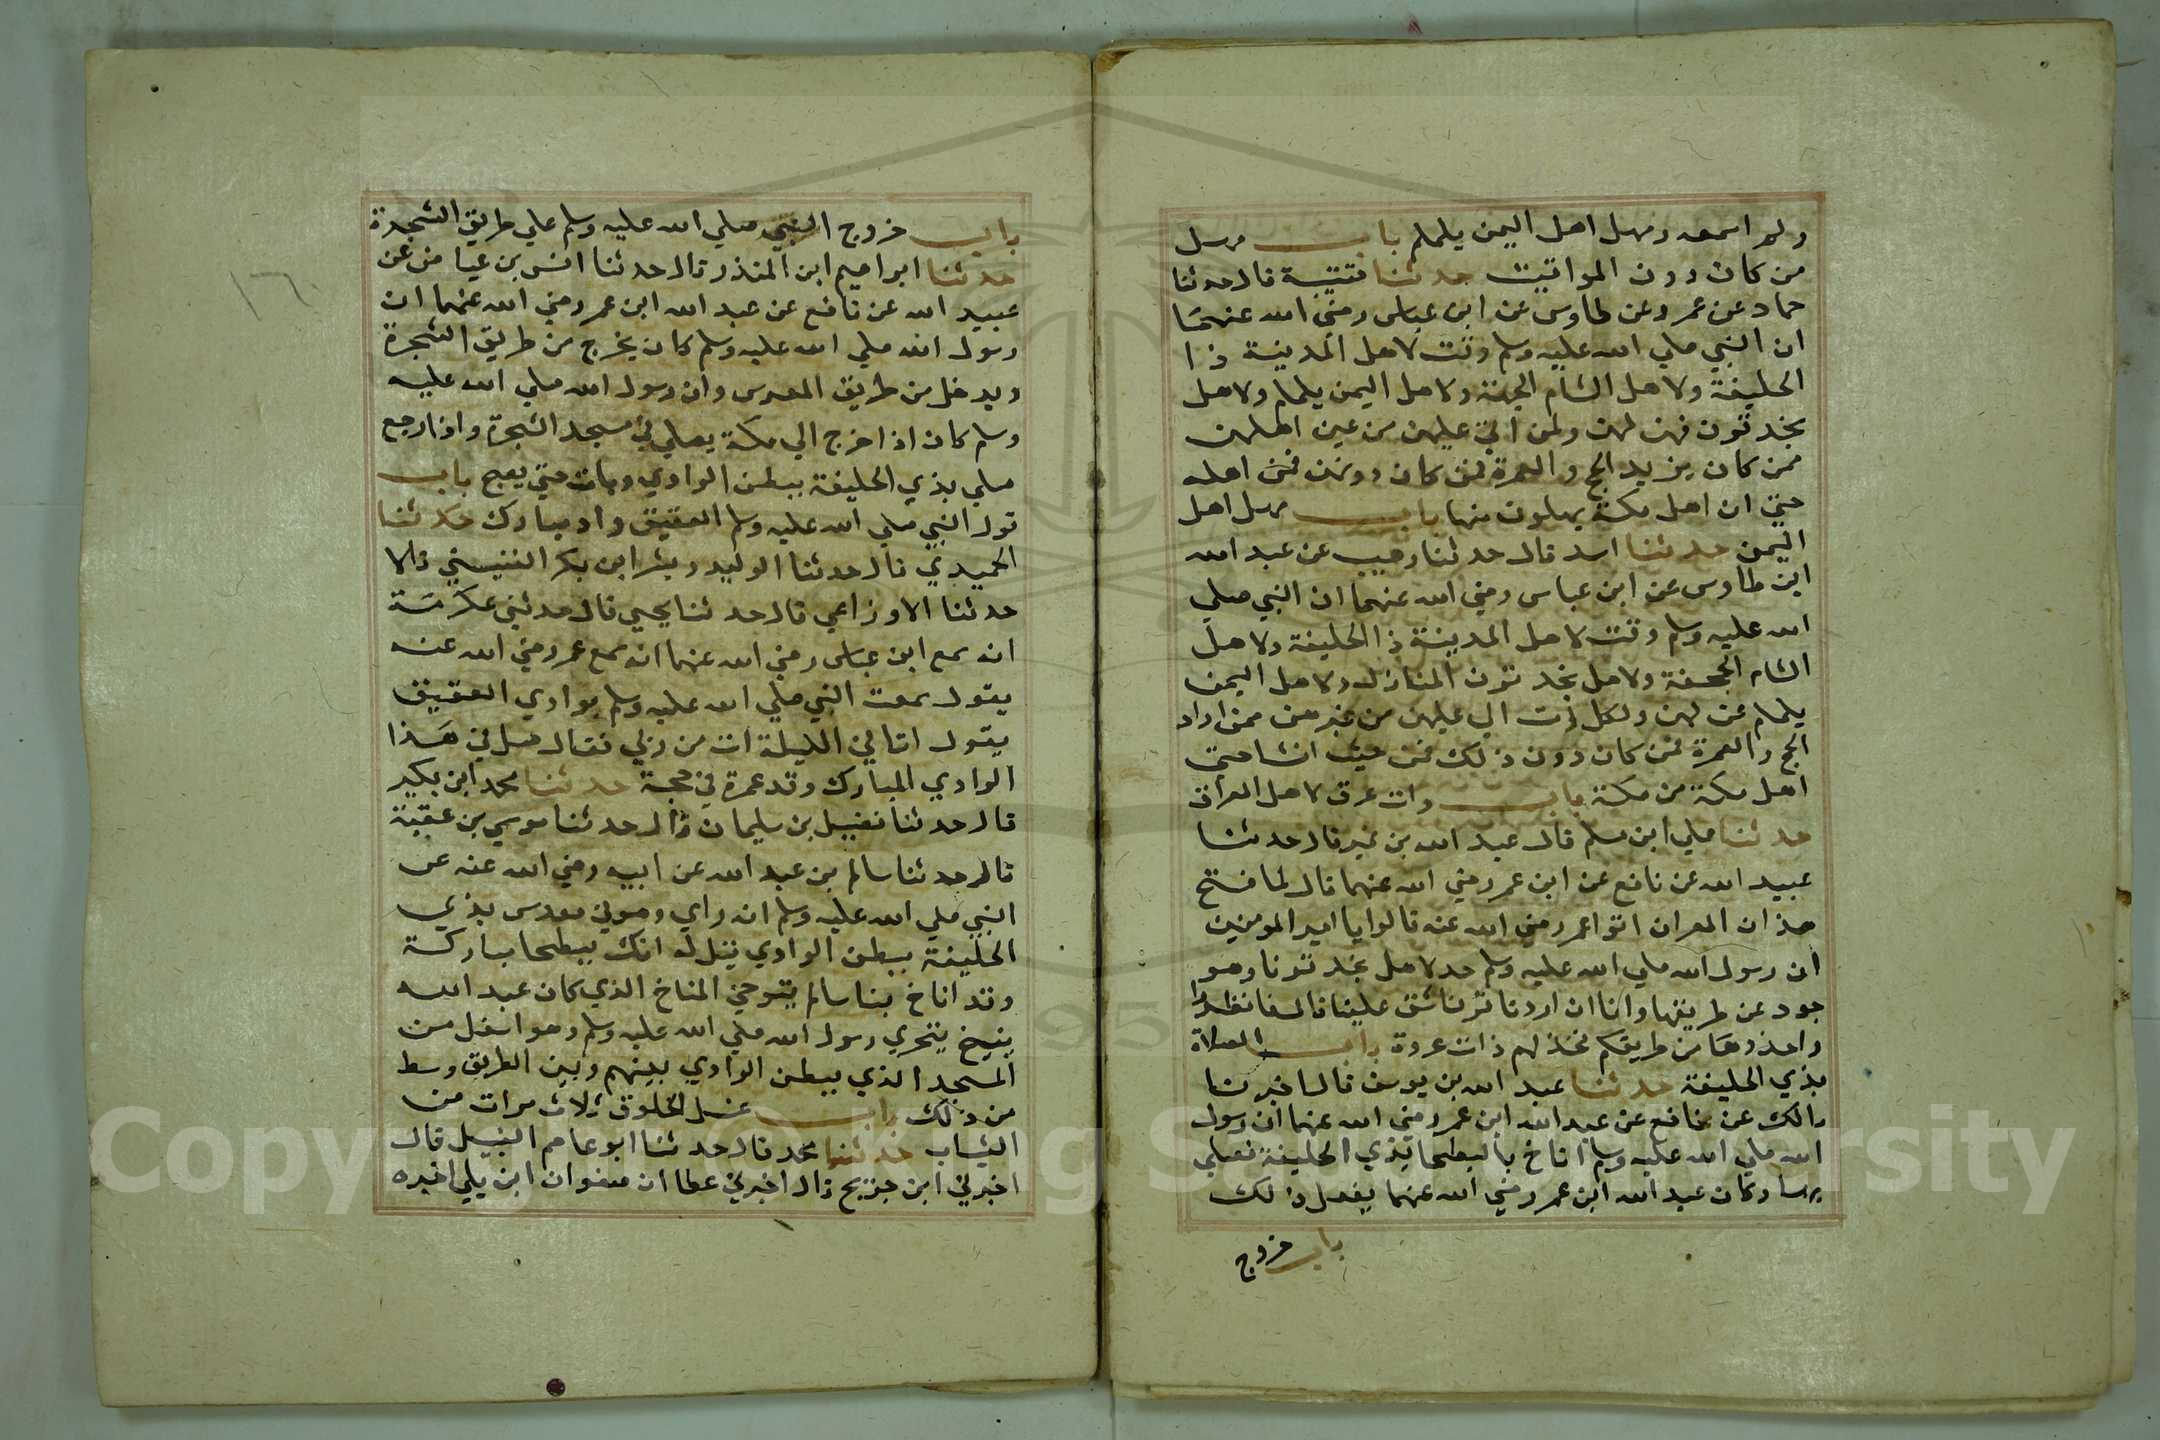 ولم اسمعه ومهل اهل اليمن يلملم باب مهل
من كان دون المواقيت حدثنا قتيبة قال حدثنا
حماد عن عمرو عن طاوس عن ابن عباس رضي الله عنهما
ان النبي صلي الله عليه وسلم وقت لاهل المدينة ذا
الحليفة ولاهل الشام الجحفة ولاهل اليمن يلملم ولاهل
نجد قرن فهن لهن ولمن اتي عليهن من غير اهلهن
ممن كان يريد الحج والعمرة فمن كان دونهن فمن اهله
حتي ان اهل مكة يهلون منها باب مهل اهل
اليمن حدثنا اسد قال حدثنا وهيب عن عبد الله
ابن طاوس عن ابن عباس رضي الله عنهما ان النبي صلي
الله عليه وسلم وقت لاهل المدينة ذا الحليفة ولاهل
الشام الجحفة ولاهل نجد قرن المنازل ولاهل اليمن
يلملم هن لهن ولكل ات الي عليهن من غيرهن ممن اراد
الحج والعمرة فمن كان دون ذلك فمن حيث انشا حتي
اهل مكة من مكة باب ذات عرق لاهل العراق
حدثنا علي ابن مسلم قال عبد الله بن نمير قال حدثنا
عبيد الله عن نافع عن ابن عمر رضي الله عنهما قال لما فتح
هذان المصران اتوا عمر رضي الله عنه قالوا يا امير المومنين
ان رسول الله صلي الله عليه وسلم حد لاهل نجد قرنا وهو
جود عن طريقها وانا ان اردنا قرنا شق علينا قال فانظروا
واحذوها من طريقكم فحد لهم ذات عروة باب الصلاة
بذي الحليفة حدثنا عبد الله بن يوسف قال اخبرنا
مالك عن نافع عن عبد الله ابن عمر رضي الله عنهما ان رسول
الله صلي الله عليه وسلم اناخ بالبطحا بذي الحليفة فصلي
بها وكان عبد الله ابن عمر رضي الله عنهما يفعل ذلك
باب خروج
باب خروج النبي صلي الله عليه وسلم علي طريق الشجرة
حدثنا ابراهيم ابن المنذر قال حدثنا انس بن عياض عن
عبيد الله عن نافع عن عبد الله ابن عمر رضي الله عنهما ان
رسول الله صلي الله عليه وسلم كان يخرج من طريق الشجرة
ويدخل من طريق المعرس وان رسول الله صلي الله عليه
وسلم كان اذا خرج الي مكة يصلي في مسجد الشجرة واذا رجع
صلي بذي الحليفة ببطن الوادي وبات حتي يصبح باب
قول النبي صلي الله عليه وسلم العقيق واد مبارك حدثنا
الحميدي قال حدثنا الوليد وبشر ابن بكر التنيسي قالا
حدثنا الاوزاعي قال حدثنا يحيي قال حدثني عكرمة
انه سمع ابن عباس رضي الله عنهما انه سمع عمر رضي الله عنه
يقول سمعت النبي صلي الله عليه وسلم بوادي العقيق
يقول اتاني الليلة ات من ربي فقال صل في هذا
الوادي المبارك وقد عمرة في حجة حدثنا محمد ابن بكير
قال حدثنا فضيل بن سليمان قال حدثنا موسي بن عقبة
قال حدثنا سالم بن عبد الله عن ابيه رضي الله عنه عن
النبي صلي الله عليه وسلم انه راي وهو في معرس بذي
الحليفة ببطن الوادي قيل له انك ببطحا مباركة
وقد اناخ بنا سالم يتوخي المناخ الذي كان عبد الله
ينيخ يتحري رسول الله صلي الله عليه وسلم وهو اسفل من
المسجد الذي ببطن الوادي بينهم وبين الطريق وسط
من ذلك باب غسل الخلوق ثلاث مرات من
الثياب حدثنا محمد قال حدثنا ابو عاصم النبيل قال
اخبرني ابن جريج قال اخبرني عطا ان صفوان ابن يعلي اخبره
١٦٠